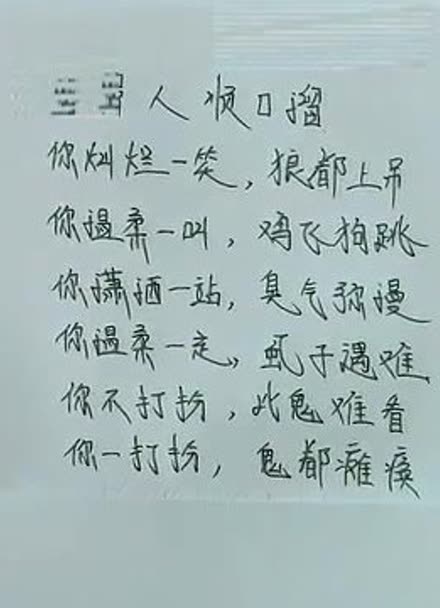 人顺口溜
你灿烂一笑，狼都上吊
你温柔一叫，鸡飞狗跳
你潇洒一站，臭气弥漫
你温柔一走，虱子遇难
你不打扮，比鬼难看
你一打扮，鬼都瘫痪